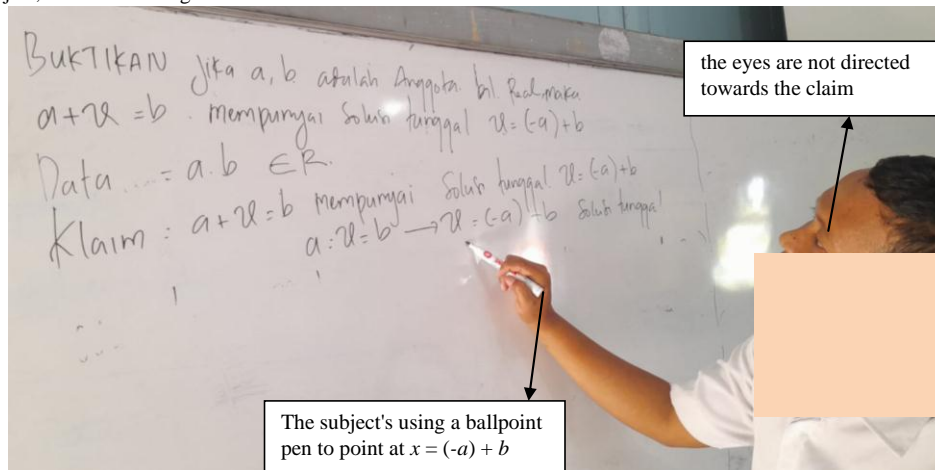 BUKTIKAN Jika a, b adulah Anggota bil. Real maka
a+x = b . mempunyai Solusi tunggal x = (-a)+b
Data .... = a.b ∈ R.
Klaim : a+x = b mempunyai Solusi tunggal. x = (-a)+b
a : x = b → x = (-a) + b Solusi tunggal
the eyes are not directed
towards the claim
The subject's using a ballpoint
pen to point at x = (-a) + b